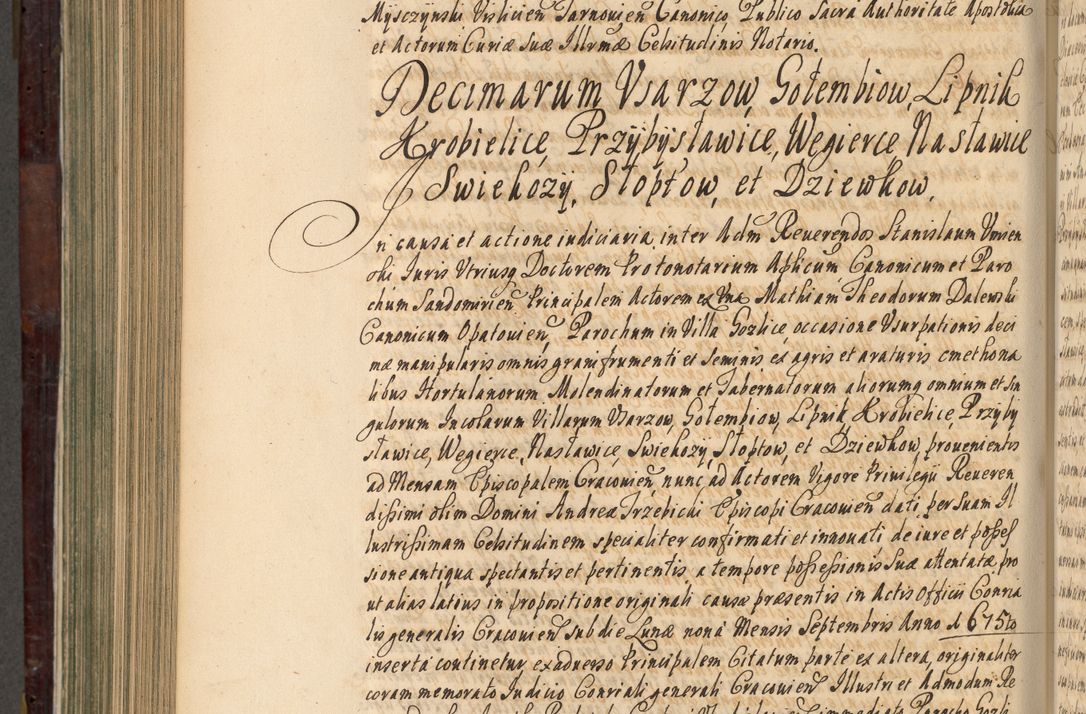 Mysczynski Vislicien Tarnouien Canonico Publico Sacra Authoritate Apostolica
et Actorum Curiæ Suæ Illrmæ Celsitudinis Notario.
Decimarum Vsarzow, Gołembiow, Lipnik
Krobielice, Przybysławice, Wegierce, Nasławice
Swiekozy, Słoptow, et Dziewkow,
In causa et actione iudiciaria inter Adm Reuerendos Stanislaum
ski Iuris Vtriusq Doctorem Protonotarium Aplicum Canonicum et Paro
chum Sandomirien Principalem Actorem ex Vna Mathiam Theodorum Dalewski
Canonicum Opatouien, Parochum in Villa Gozlice, occasione Vsurpationis deci
mæ manipularis omnis grani frumenti et seminis ex agris et araturis cmethona
libus Hortulanorum Molendinatorum et Tabernatorum aliorumq omnium et sin
gulorum Incolarum Villarum Vsarzow, Gołembiow, Lipnik, Krobielice, Przyby
sławice, Wegierce, Nasławice, Swiekozy, Słoptow, et Dziewkow, prouenientis
ad Mensam Episcopalem Cracouien nunc ad Actorem Vigore Priuilegii Reueren
dissimi olim Domini Andreæ Trzebicki Episcopi Cracouien dati, per Suam Il
lustrissimam Celsitudinem specialiter confirmati et innouati de iure et posses
sione antiqua spectantis et pertinentis, a tempore possessionis Suæ attentatæ, pro
ut alias latius in propositione originali causæ præsentis in Actis Officii Consia
lis generalis Cracouien sub die Lunæ nona Mensis Septembris Anno d 675to
inserta continetur, ex aduerso Principalem Citatum parte ex altera, originaliter
coram memorato Iudicio Consiali generali Cracouien Illustri et Admodum Re